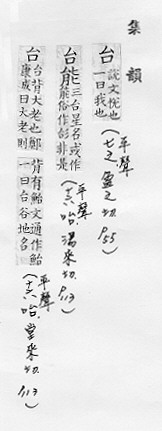 集韻
台 說文悅也一曰我也 (平聲 七之 盈之切 P.55)
台能 三台星名或作能俗作㣍非是 (平聲 十六咍 湯來切 P.113)
台 台背大老也鄭康成曰大老則背有鮐文通作鮐一曰台谷地名 (平聲 十六咍 堂來切 P.113)